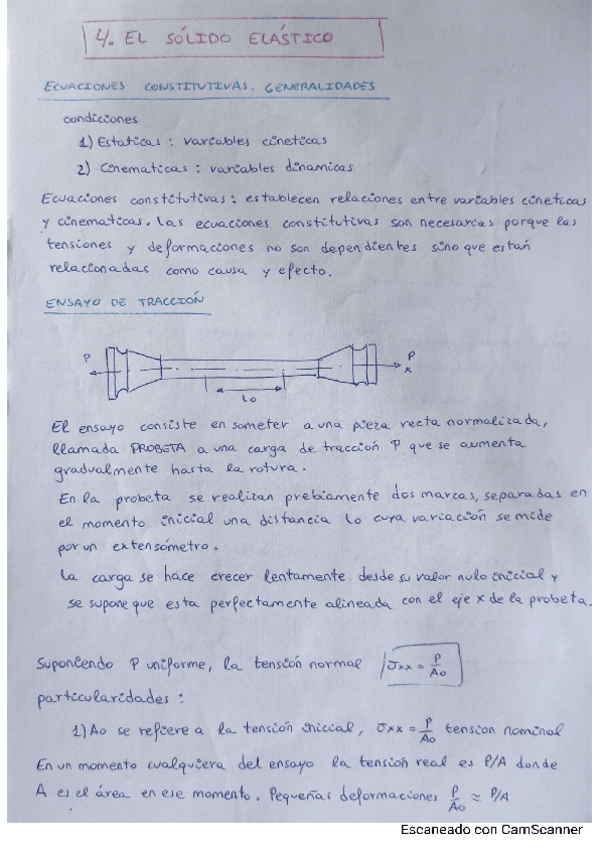 4. EL SÓLIDO ELÁSTICO
ECUACIONES CONSTITUTIVAS. GENERALIDADES
condiciones
1) Estaticas : variables cineticas
2) Cinematicas : variables dinamicas
Ecuaciones constitutivas : establecen relaciones entre variables cineticas
y cinematicas. Las ecuaciones constitutivas son necesarias porque las
tensiones y deformaciones no son dependientes sino que están
relacionadas como causa y efecto.
ENSAYO DE TRACCIÓN
P
P
x
lo
El ensayo consiste en someter a una pieza recta normalizada,
llamada PROBETA a una carga de tracción P que se aumenta
gradualmente hasta la rotura.
En la probeta se realizan prebiamente dos marcas, separadas en
el momento inicial una distancia lo cuya variación se mide
por un extensómetro.
La carga se hace crecer lentamente desde su valor nulo inicial y
se supone que esta perfectamente alineada con el eje x de la probeta.
Suponiendo P uniforme, la tensión normal σxx = P/Ao
particularidades :
1) Ao se refiere a la tensión inicial, σxx = P/Ao tension nominal
En un momento cualquiera del ensayo la tensión real es P/A donde
A es el área en ese momento. Pequeñas deformaciones P/Ao ≃ P/A
Escaneado con CamScanner